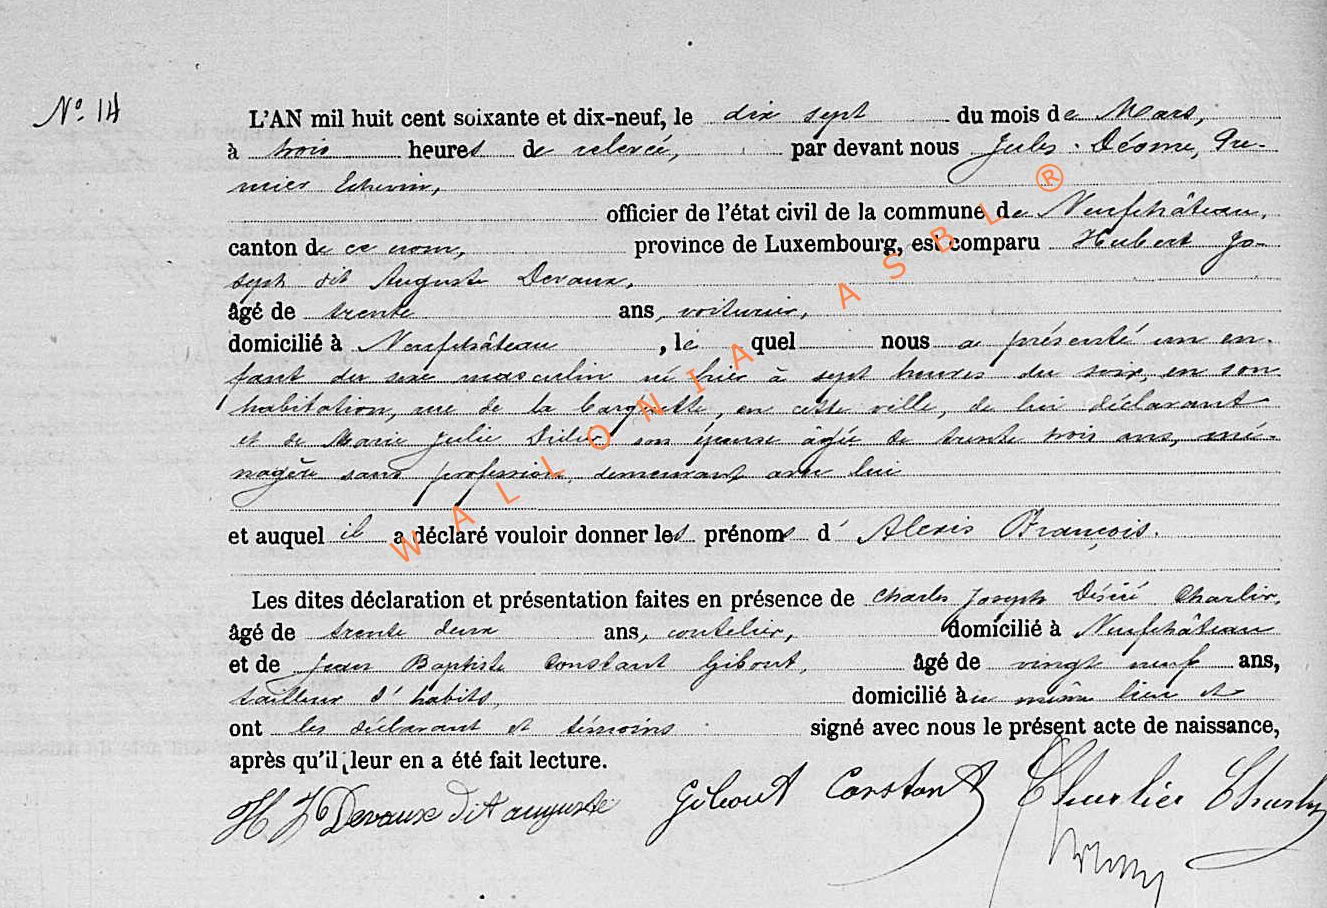 N° 14
L'AN mil huit cent soixante et dix-neuf, le dix sept du mois de Mars,
à trois heures de relevée, par devant nous Jules Déome, Pre-
mier Echevin,
officier de l'état civil de la commune de Neufchâteau,
canton de ce nom, province de Luxembourg, est comparu Hubert Jo-
seph dit Auguste Devaux,
âgé de trente ans, voiturier,
domicilié à Neufchâteau, le quel nous a présenté un en-
fant du sexe masculin né hier à sept heures du soir, en son
habitation, rue de la, en cette ville, de lui déclarant
et de Marie Julie Didier son épouse âgée de trente trois ans, mé-
nagère sans profession, demeurant avec lui
et auquel il a déclaré vouloir donner les prénoms d' Alexis François.
Les dites déclaration et présentation faites en présence de Charles Joseph Désiré Charlier,
âgé de trente deux ans, coutelier, domicilié à Neufchâteau
et de Jean Baptiste Constant Gibout, âgé de vingt neuf ans,
tailleur d'habits, domicilié au même lieu et
ont les déclarant et témoins signé avec nous le présent acte de naissance,
après qu'il leur en a été fait lecture.
H J Devaux dit auguste Gibout Constant Charlier Charles
WALLONIA ASBL ®